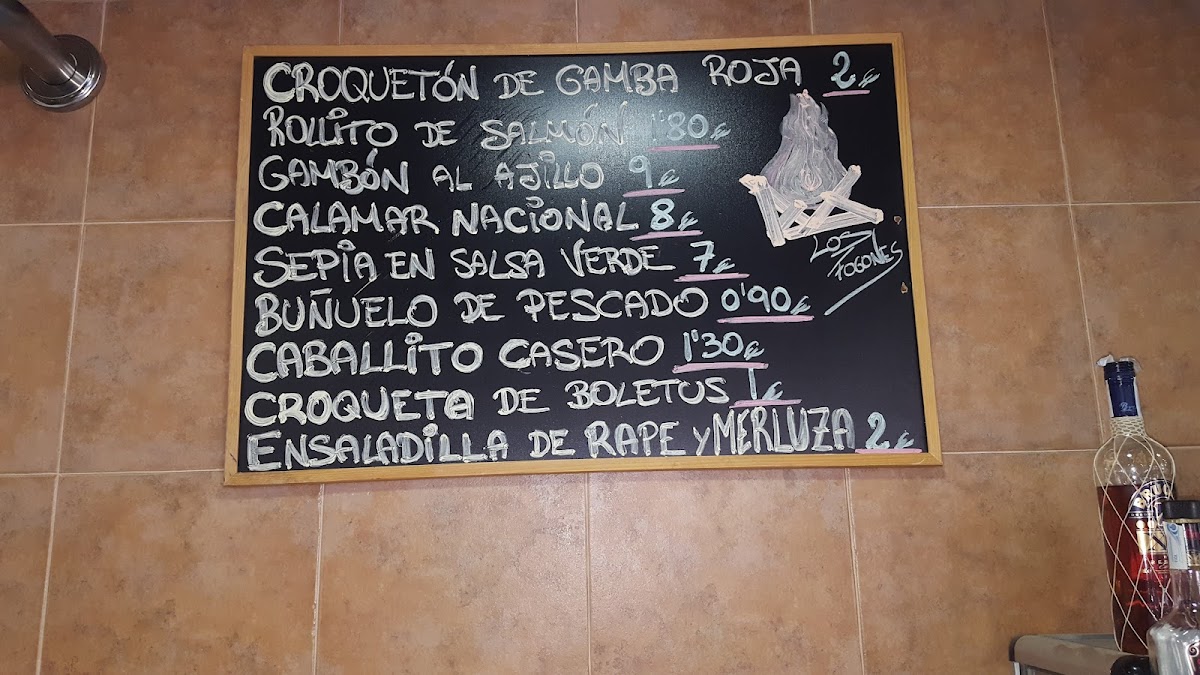 CROQUETÓN DE GAMBA ROJA 2€
ROLLITO DE SALMÓN 1'80€
GAMBÓN AL AJILLO 9€
CALAMAR NACIONAL 8€
SEPIA EN SALSA VERDE 7€
LOS FOGONES
BUÑUELO DE PESCADO 0'90€
CABALLITO CASERO 1'30€
CROQUETA DE BOLETUS 1€
ENSALADILLA DE RAPE Y MERLUZA 2€